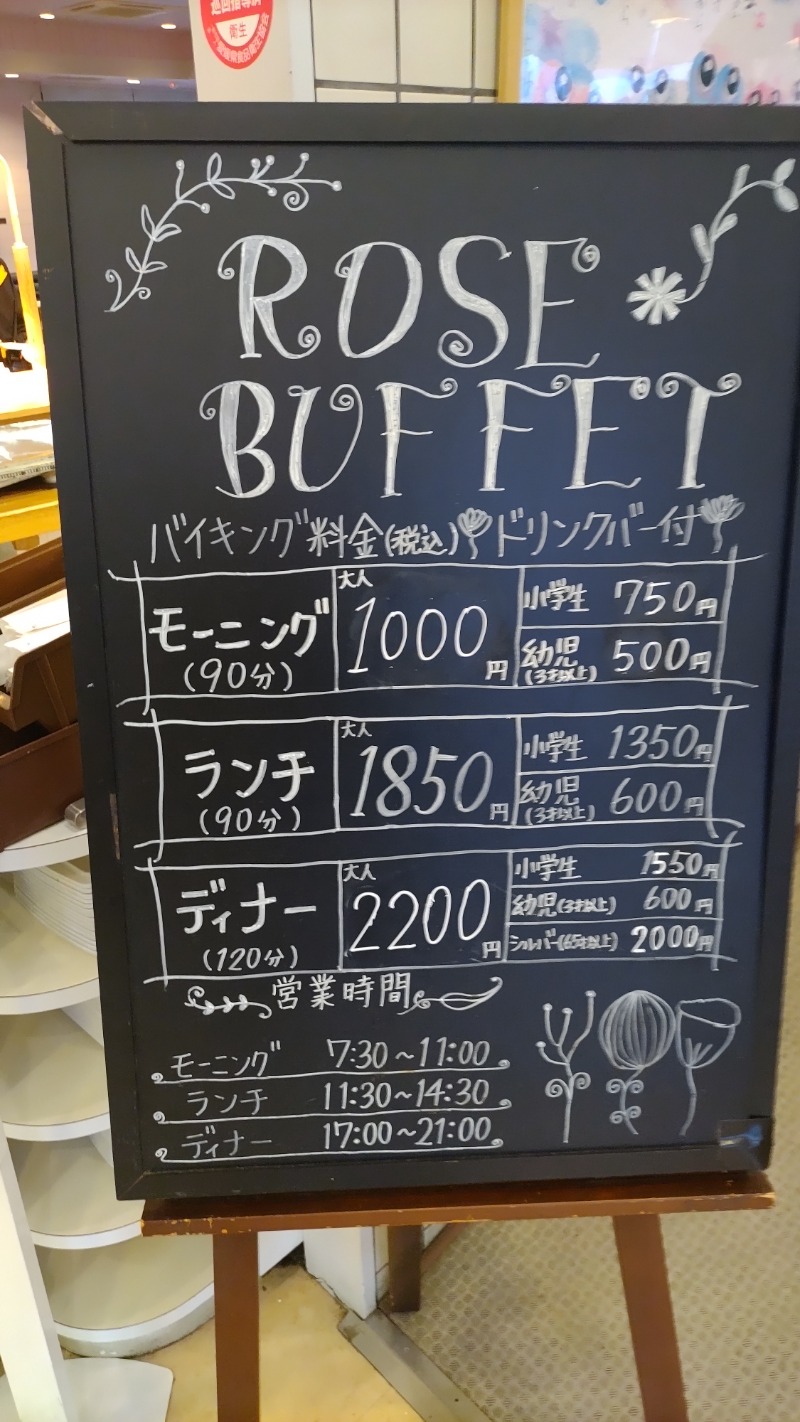 巡回指導済
衛生
ROSE
BUFFET
バイキング料金(税込)ドリンクバー付
モーニング
(90分)
大人
1000円
小学生 750円
幼児(3才以上) 500円
ランチ
(90分)
大人
1850円
小学生 1350円
幼児(3才以上) 600円
ディナー
(120分)
大人
2200円
小学生 1550円
幼児(3才以上) 600円
シルバー(65才以上) 2000円
営業時間
モーニング 7:30~11:00
ランチ 11:30~14:30
ディナー 17:00~21:00